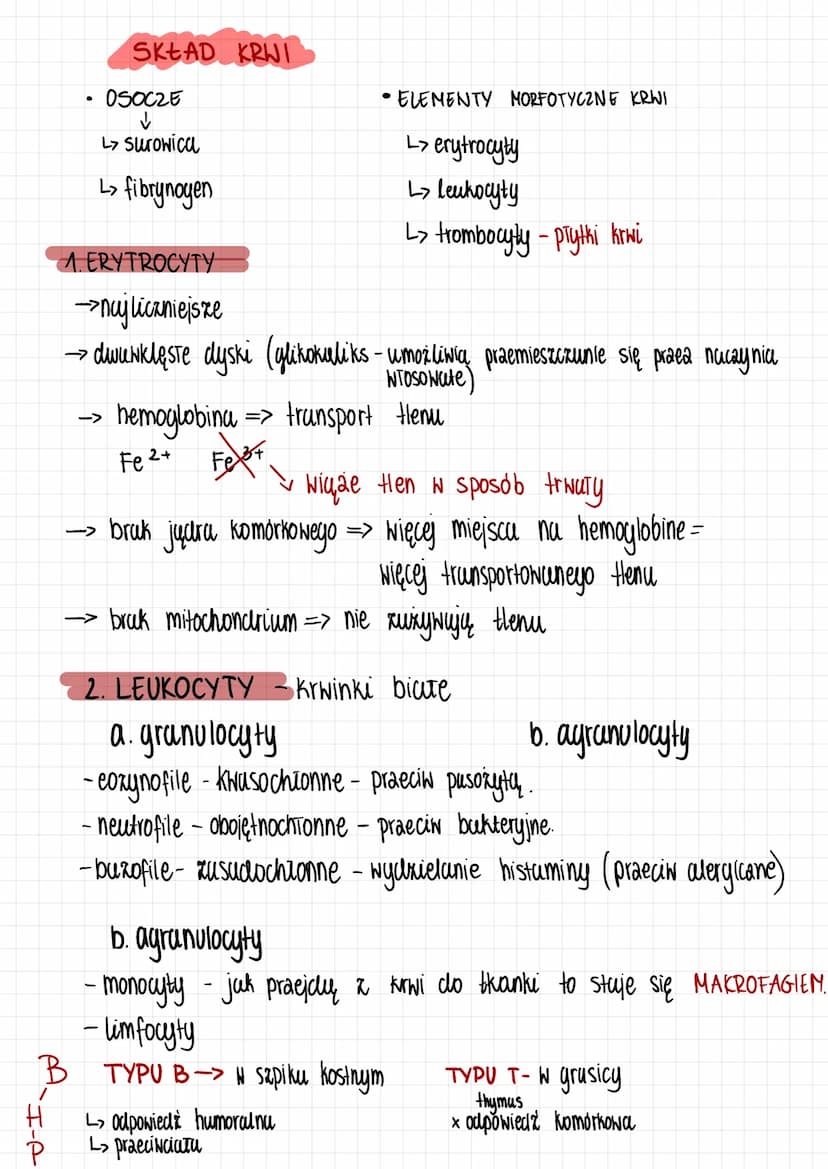 SKŁAD KRWI
• OSOCZE
↓
↳ surowica
↳ fibrynogen
• ELEMENTY MORFOTYCZNE KRWI
↳ erytrocyty
↳ leukocyty
↳ trombocyty - płytki krwi
1. ERYTROCYTY
→ najliczniejsze
→ dwuwklęsłe dyski (glikokaliks - umożliwia przemieszczanie się przez naczynia
włosowate)
→ hemoglobina => transport tlenu
Fe 2+ Fe 3+
↘ wiąże tlen w sposób trwały
→ brak jądra komórkowego => więcej miejsca na hemoglobine =
więcej transportowanego tlenu
→ brak mitochondrium => nie zużywują tlenu
2. LEUKOCYTY - krwinki białe
a. granulocyty b. agranulocyty
- eozynofile - kwasochłonne - przeciw pasożytą.
- neutrofile - obojętnochłonne - przeciw bakteryjne.
- bazofile - zasadochłonne - wydzielanie histaminy (przeciw alergiczne)
b. agranulocyty
- monocyty - jak przejdą z krwi do tkanki to staje się MAKROFAGIEM.
- limfocyty
B TYPU B → w szpiku kostnym TYPU T - w grasicy
thymus
H ↳ odpowiedź humoralna x odpowiedź komórkowa
P ↳ przeciwciała